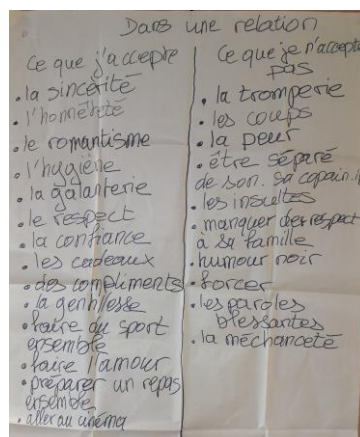 Dans une relation
Ce que j'accepte
. la sincérité
. l'honnêteté
. le romantisme
. l'hygiène
. la galanterie
. le respect
. la confiance
. les cadeaux
. des compliments
. la gentillesse
. faire du sport
ensemble
. faire l'amour
. préparer un repas
ensemble
. aller au cinéma
Ce que je n'accepte
pas
. la tromperie
. les coups
. la peur
. être séparé
de son. sa copain.
. les insultes
. manquer de respect
à sa famille
. humour noir
. forcer
. les paroles
blessantes
. la méchanceté